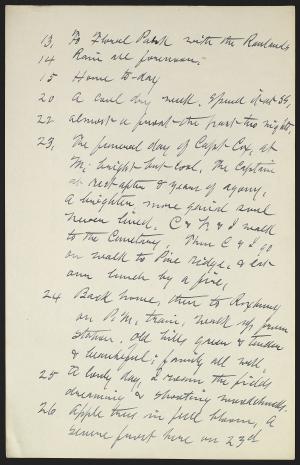 13, To Floral Park with the Rowlands
14 Rain all forenoon.
15 Home to-day
20 A cool dry week. Spend it at SS,
22 almost a frost the past two nights,
23, The funeral day of Capt Cox, at
M; bright but cool. The Captain
at rest after 8 years of agony.
A brighter more genial soul
never lived. C & N & I walk
to the Cemetery, Then C & I go
on walk to Pine ridge, & eat
our lunch by a fire,
24 Back home, then to Roxbury
on P.M. train, walk up from
station. Old hills green & tender
& beautiful; family all well,
25 A lovely day, I roam the fields
dreaming & shooting woodchucks.
26 Apple trees in full bloom, A
severe frost here on 23d